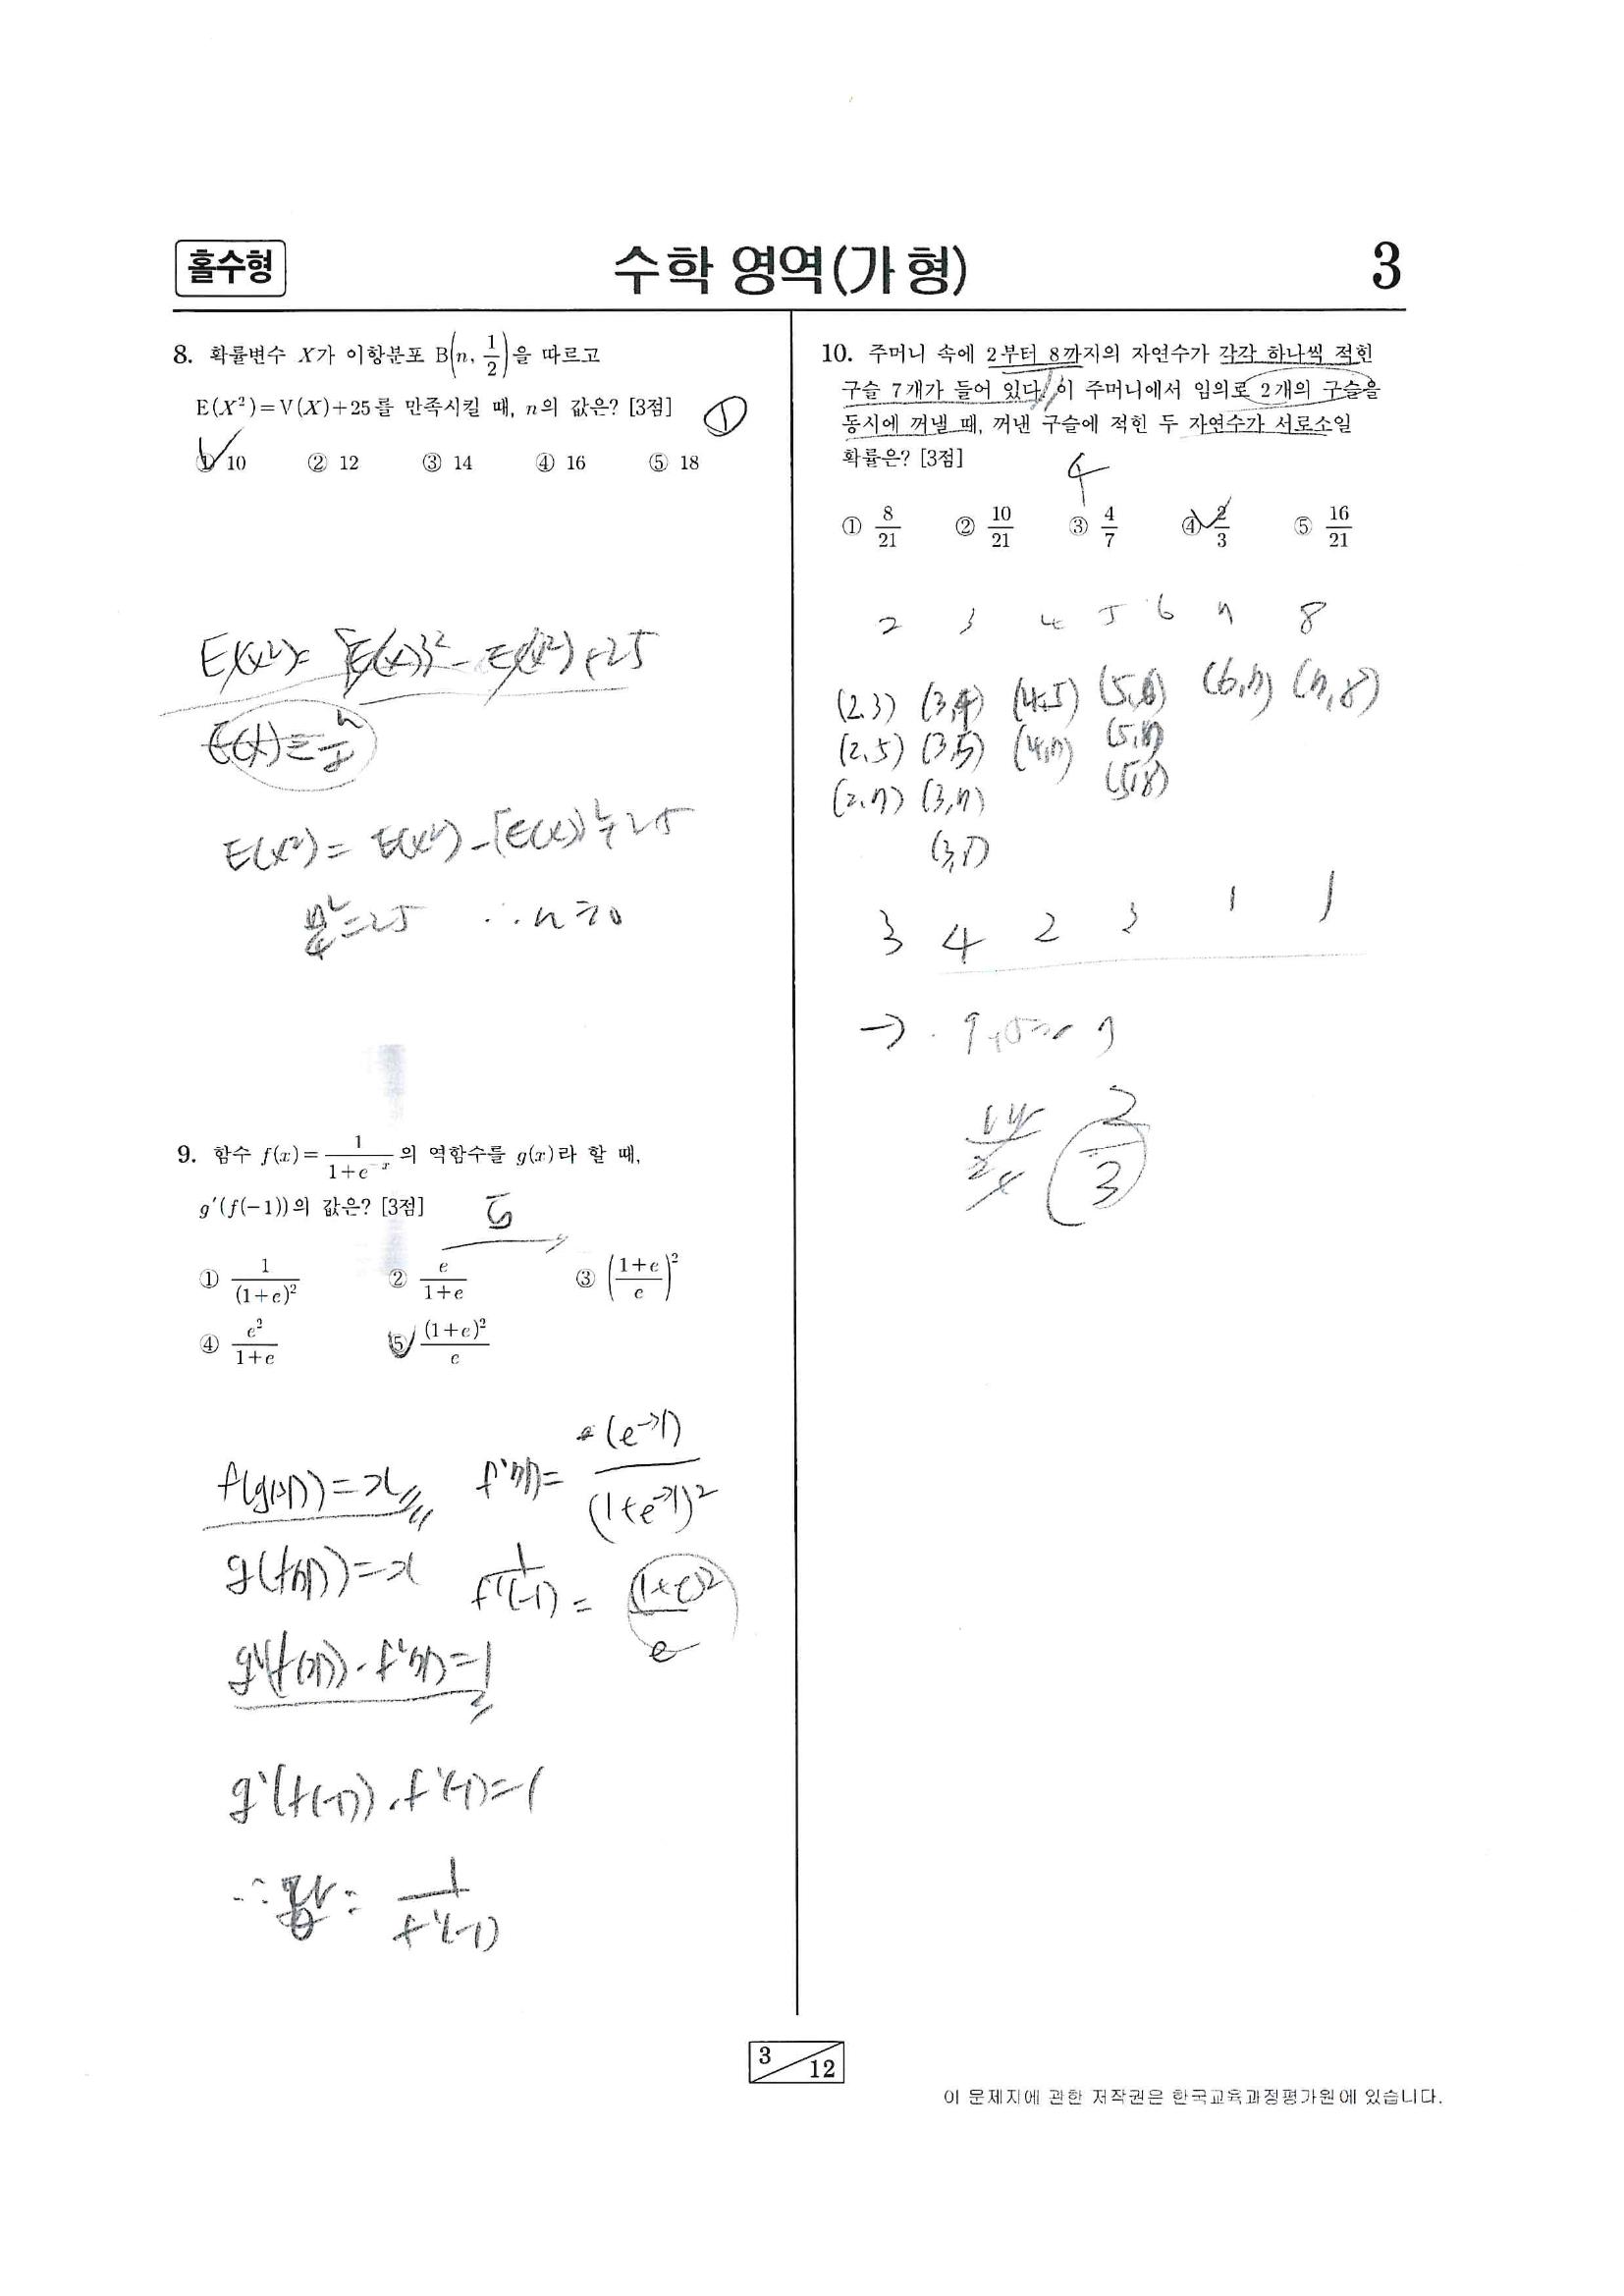 홀수형
수학 영역(가형)
3
8. 확률변수 X가 이항분포 B(n, 1/2)을 따르고
E(X²)=V(X)+25를 만족시킬 때, n의 값은? [3점]
①
① 10 ② 12 ③ 14 ④ 16 ⑤ 18
E(X²)= {E(X)}² - E(X²) + 25
E(X) = n/2
E(X²) = E(X²) - [E(X)]² + 25
n²/4 = 25 ∴ n = 10
9. 함수 f(x)=1/(1+e⁻ˣ)의 역함수를 g(x)라 할 때,
g′(f(−1))의 값은? [3점]
5
① 1/(1+e)² ② e/(1+e) ③ ((1+e)/e)²
④ e²/(1+e) ⑤ (1+e)²/e
f(g(x)) = x
f'(x) = (e⁻ˣ)/(1+e⁻ˣ)²
g(f(x)) = x
1/f'(-1) = (1+e)²/e
g'(f(x)) · f'(x) = 1
g'(f(-1)) · f'(-1) = 1
∴ 답 = 1/f'(-1)
10. 주머니 속에 2부터 8까지의 자연수가 각각 하나씩 적힌
구슬 7개가 들어 있다. 이 주머니에서 임의로 2개의 구슬을
동시에 꺼낼 때, 꺼낸 구슬에 적힌 두 자연수가 서로소일
확률은? [3점]
4
① 8/21 ② 10/21 ③ 4/7 ④ 2/3 ⑤ 16/21
2 3 4 5 6 7 8
(2,3) (3,4) (4,5) (5,6) (6,7) (7,8)
(2,5) (3,5) (4,7) (5,7)
(2,7) (3,7) (5,8)
(3,8)
3 4 2 3 1 1
→
14/21 2/3
3/12
이 문제지에 관한 저작권은 한국교육과정평가원에 있습니다.